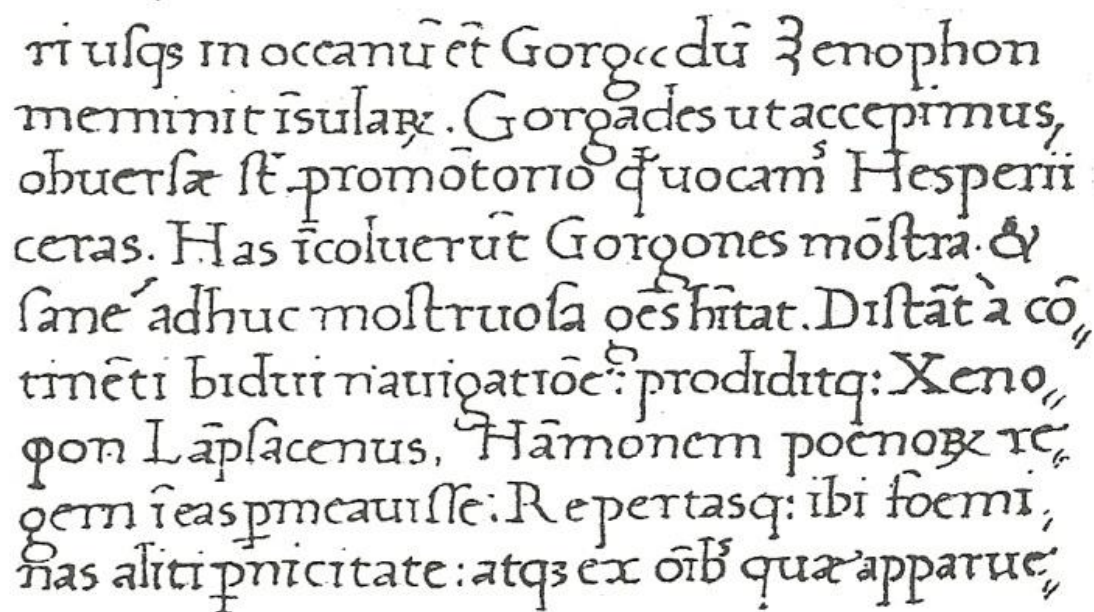 ri uſqꝫ in oceanū ct̄ Gorg‹‹dū Ξenophon
meminit īsulaꝶ. Gorgades ut accepimus,
obuerſæ ſt̄ ꝓmōtorio qd̄ uocamꝰ Hesperii
ceras. Has īcoluerūt Gorgones mōſtra. &
ſane adhuc moſtruoſa oēs hītat. Diſtāt à cō〃
tinēti bidui nauigatiōe: prodiditq: Xeno〃
φon Lāpſacenus, Hāmonem poenoꝶ re〃
gem ī eas pmeauiſſe: Repertasq: ibi foemi,
nas aliti ꝑnicitate: atqꝫ ex oībꝰ quæ apparue〃